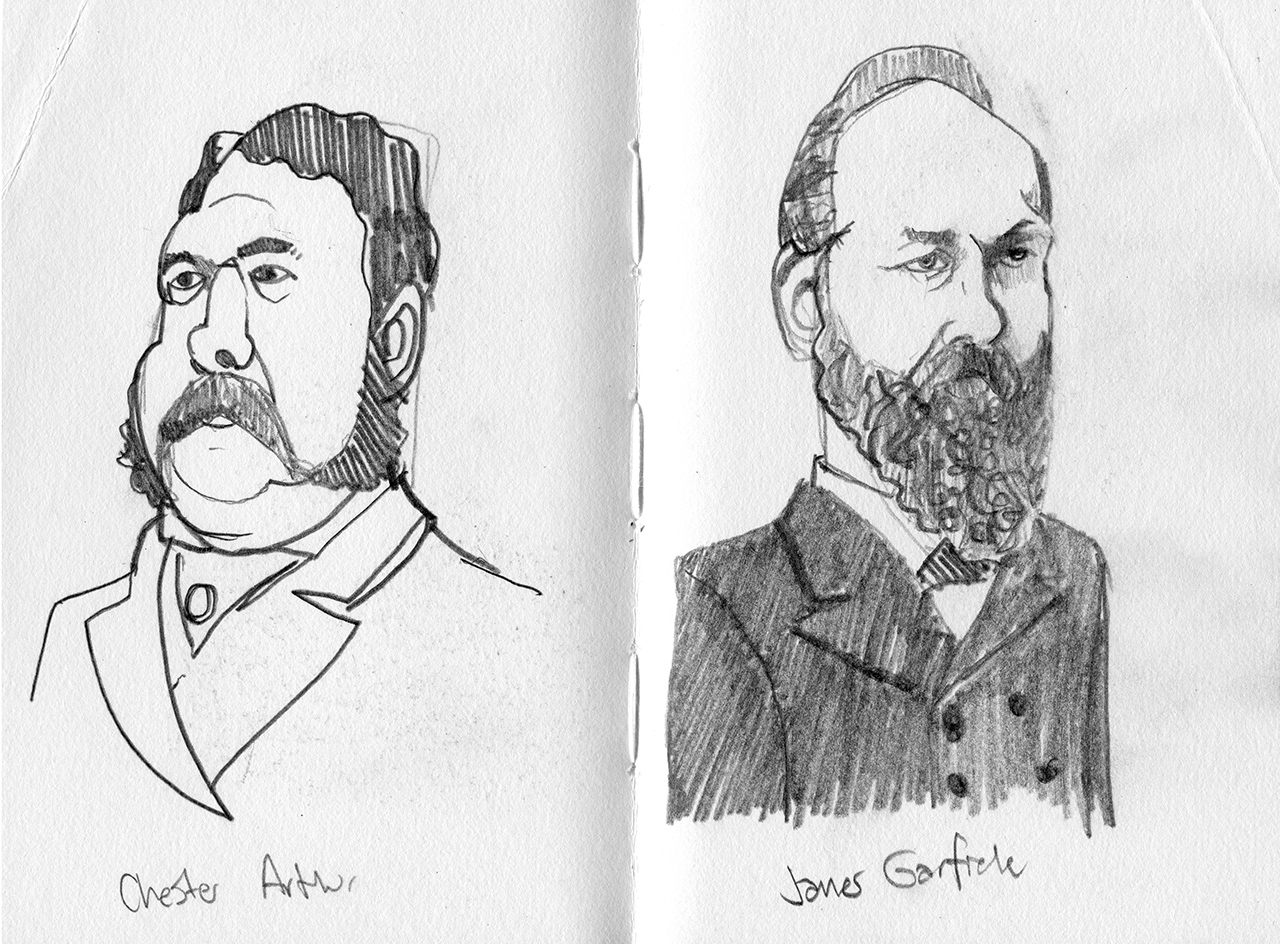 Chester Arthur
James Garfield